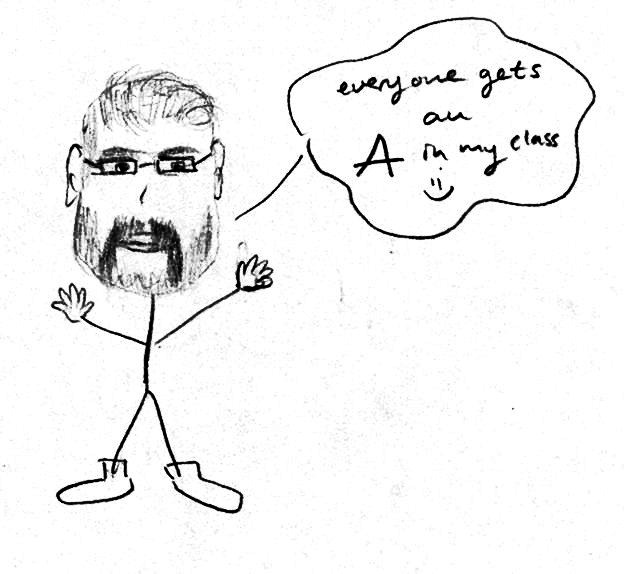 everyone gets
an
A in my class